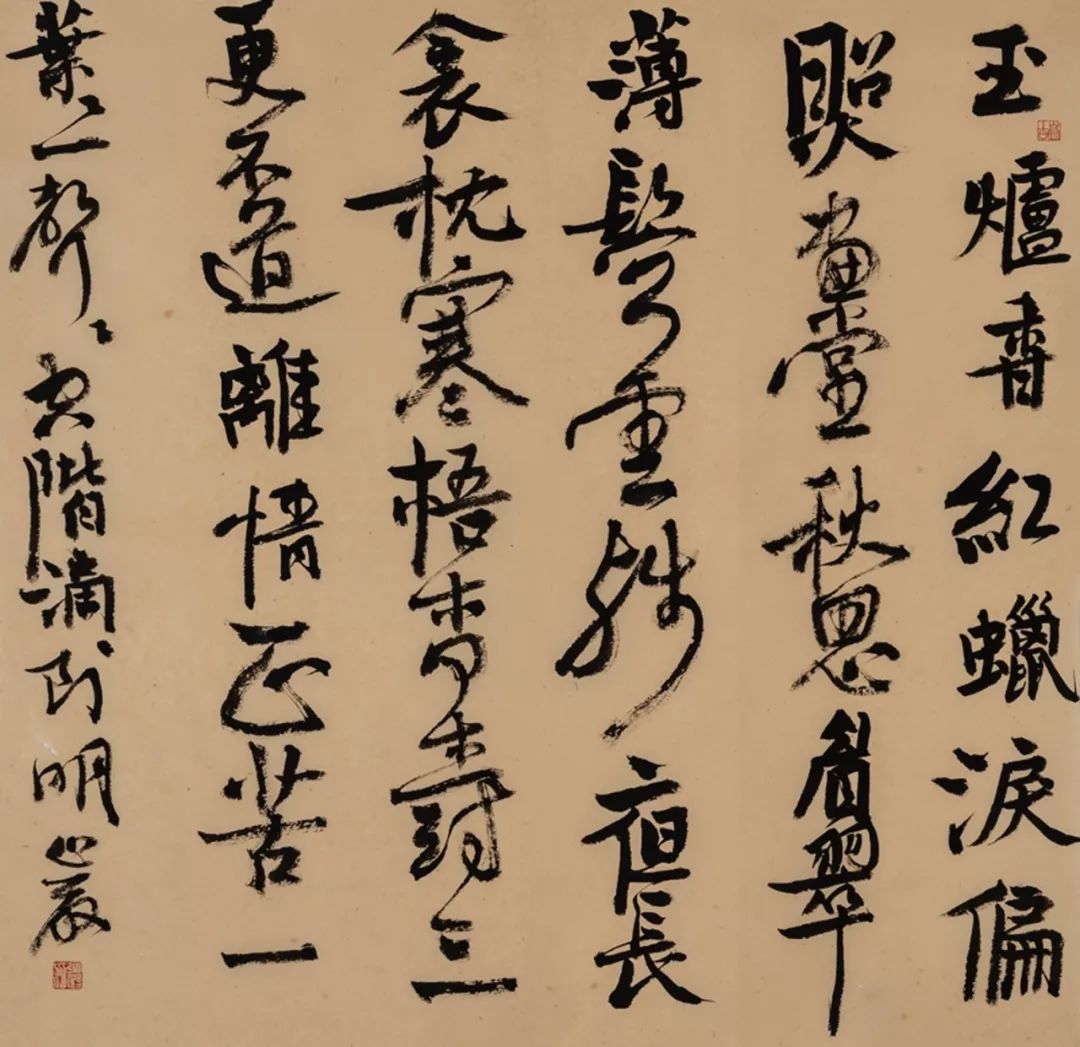 玉爐香紅蠟淚偏
照畫堂秋思眉翠
薄鬢雲殘夜長
衾枕寒梧桐樹三
更不道離情正苦一
葉〻一聲〻空階滴到明